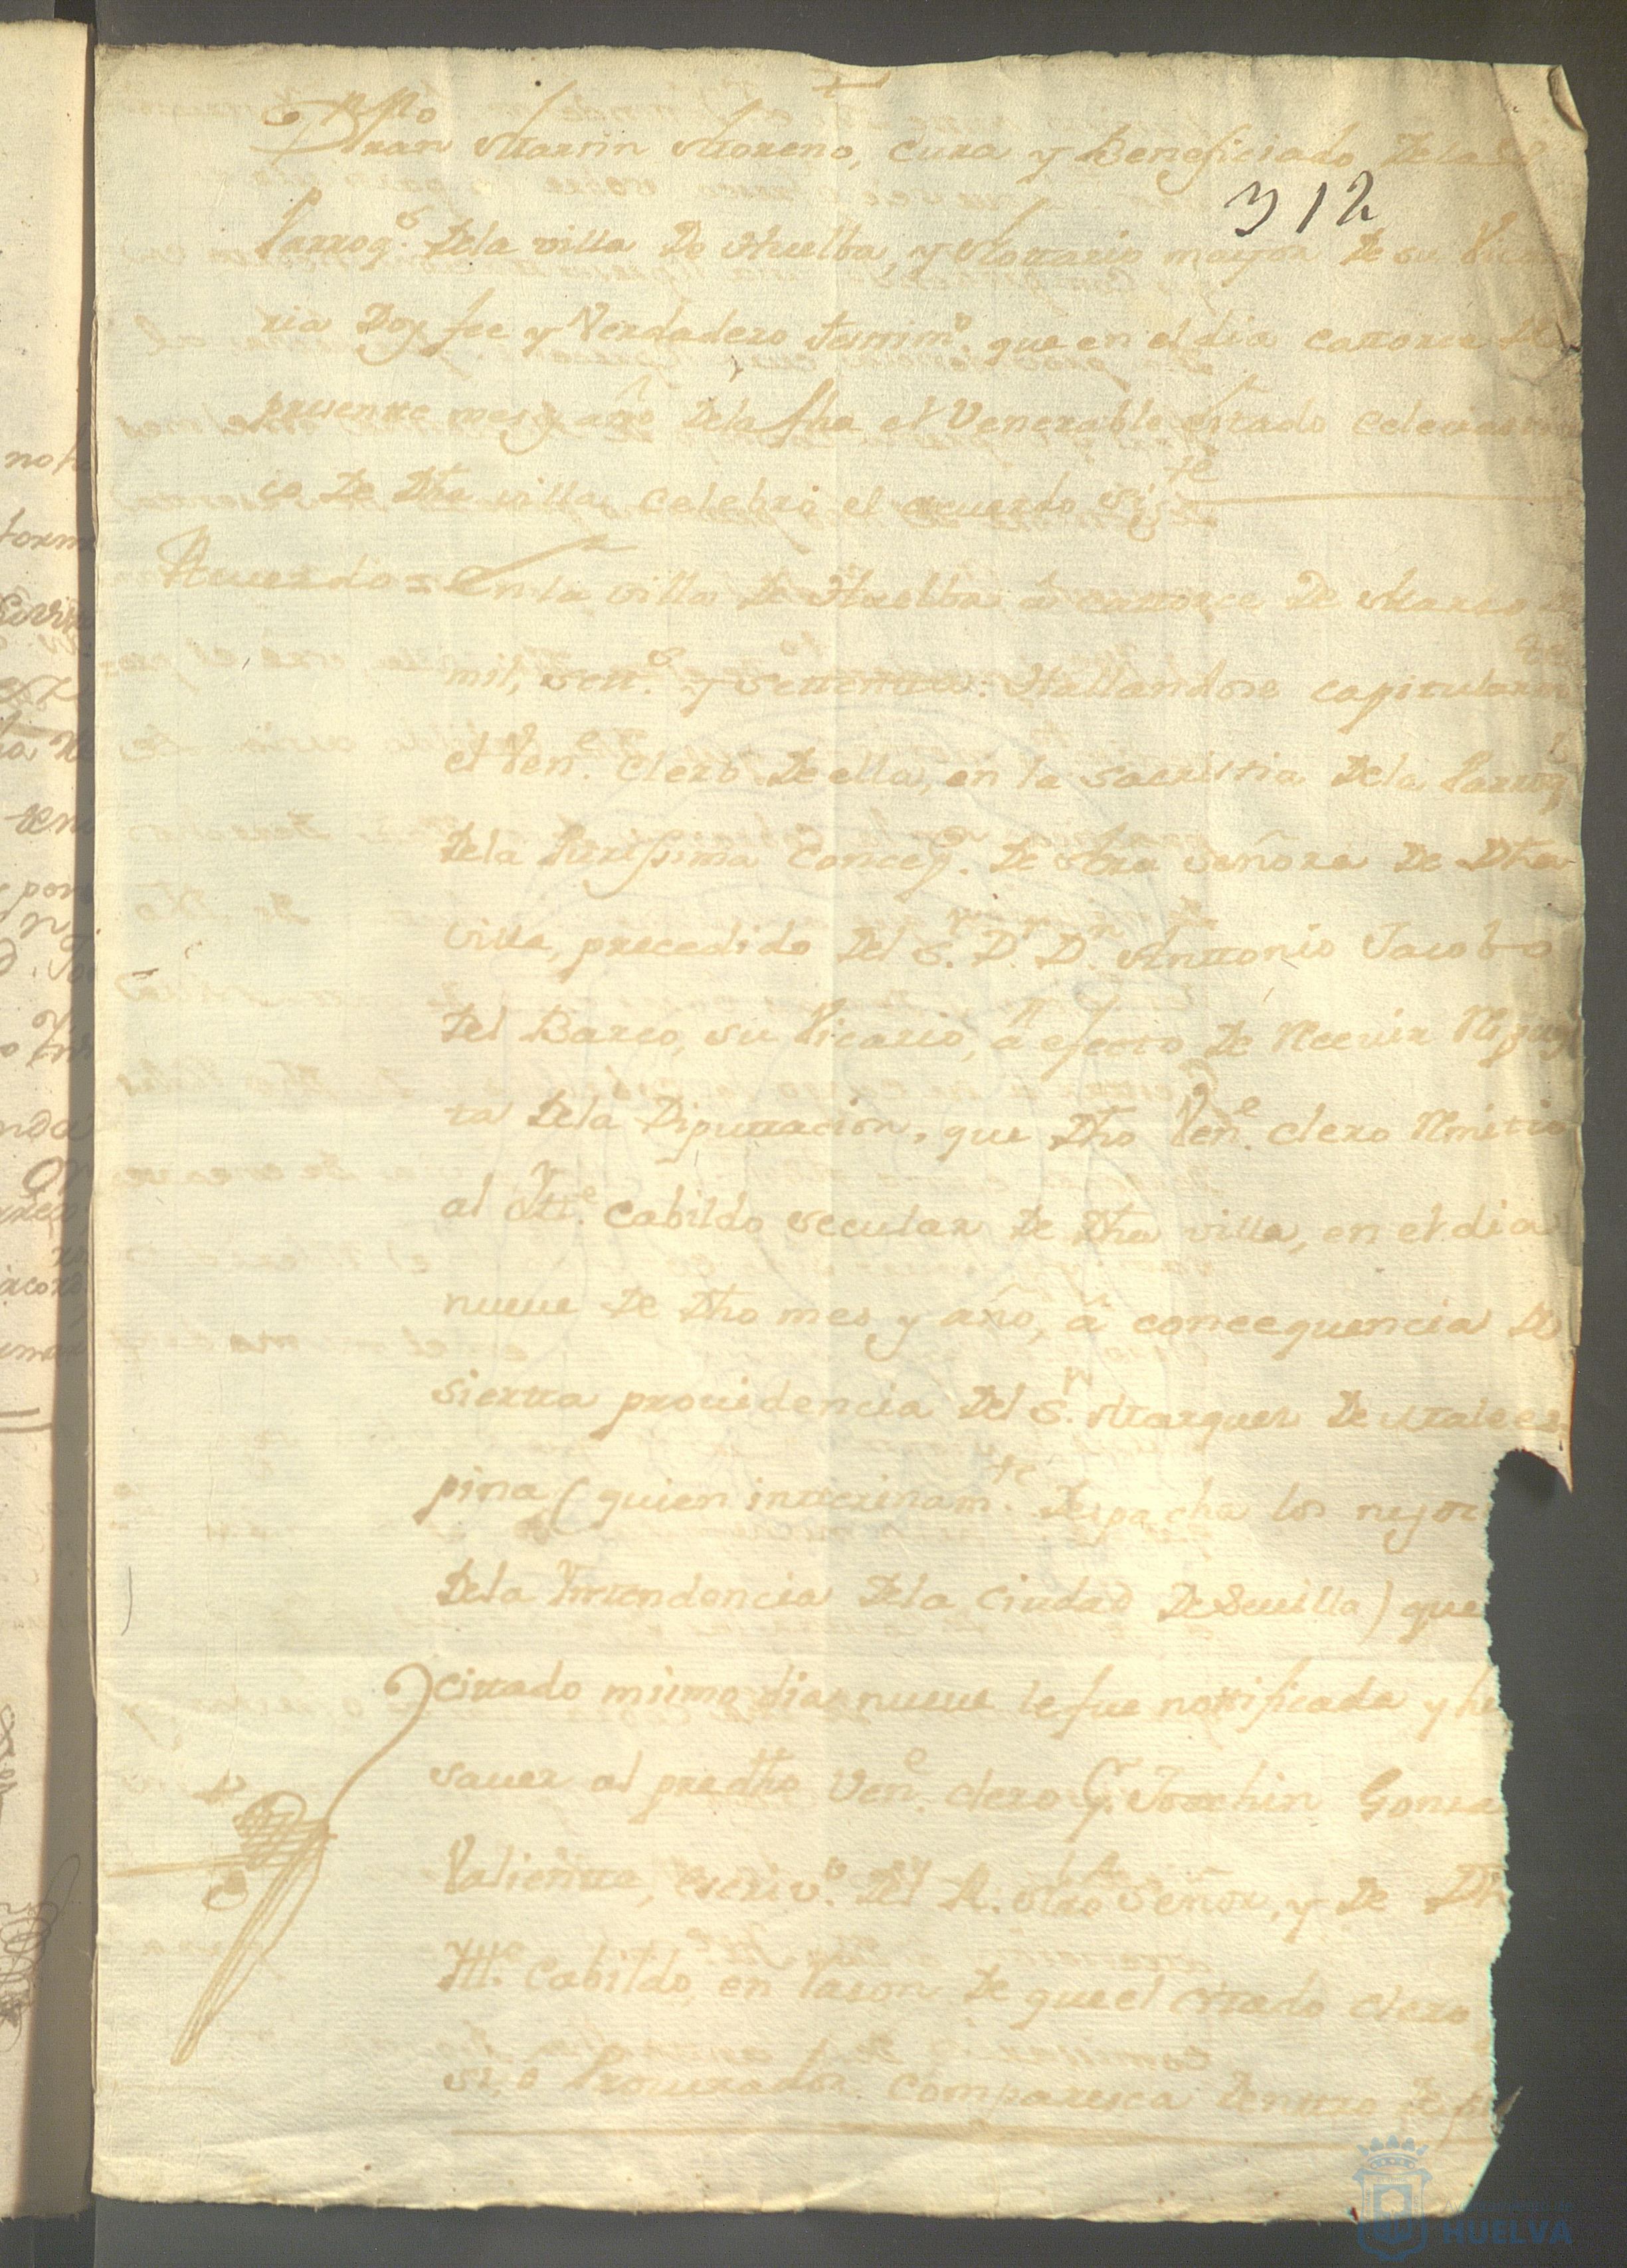 Fran Martin Moreno, Cura y Beneficiado Dela
312
Parroq.ᵃ Dela villa De Huelba, y Nottario mayor De su Vica
ria Doy fee y Verdadero testim.º que en el dia cattorce Del
presentte mes y año Dela fha el Venerable esttado eclesiasti
co De Dha villa, celebró el acuerdo sig.te
Acuerdo = En la villa De Huelba á cattorce De Marzo de
mil, sett.s y settentta: Hallandose capitularm.te
el Ven.e clero De ella, en la sacristia Dela Parroq.l
Dela Purissima Concep.n De Ntra Señora De Dha
villa, precedido Del S.r D.r D.n Anttonio Jacobo
Del Barco, su Vicario, á efecto De Recevir Respues
ta Dela Diputtacion, que Dho Ven.e clero Remitió
al Ill.e Cabildo secular De Dha villa, en el dia
nueve De Dho mes y año, á concequencia De
sierta providencia Del S.r Marques De Vales
pina (quien intterinam.te Despacha los nejoc
Dela Inttendencia Dela Ciudad De Sevilla) que
cittado mismo dia nueve le fue nottificada y he
saver al predho Ven.e clero P.r Joachin Gonsa
Valientte, escriv.o Del R. Ntro Señor, y De Dh
Ill.e Cabildo, en rason De que el cittado clero
si, ó Procurador comparesca Denttro De
Ayuntamiento de
HUELVA